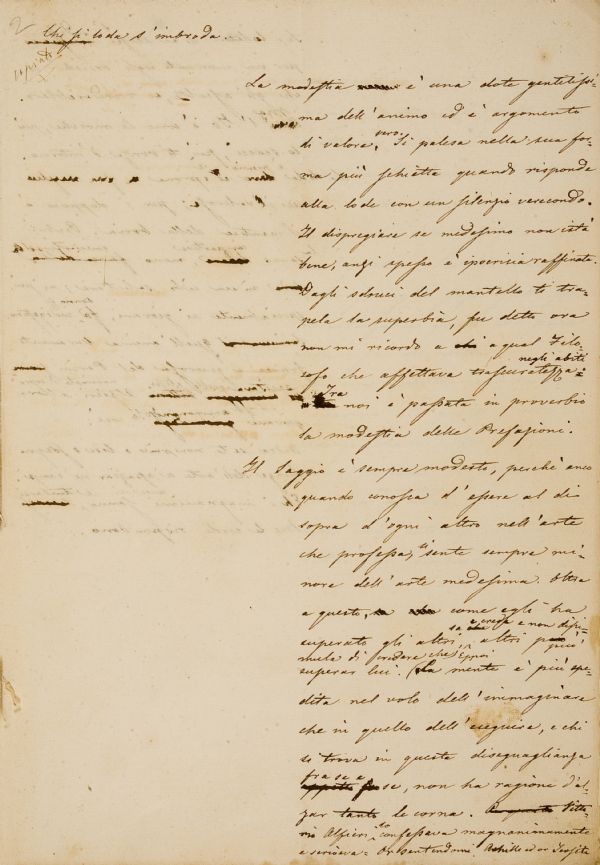 2
Chi si loda s'imbroda.
La modestia è una dote gentilissi-
ma dell'animo ed è argomento
di valore vero. Si palesa nella sua for-
ma più schietta quando risponde
alla lode con un silenzio verecondo.
Il dispregiare se medesimo non istà
bene, anzi spesso è ipocrisia raffinata.
Dagli sdruci del mantello ti tra-
pela la superbia, fu detto ora
non mi ricordo a chi a qual Filo-
sofo che affettava trascuratezza negli abiti
Tra noi è passata in proverbio
la modestia delle Prefazioni.
Il Saggio è sempre modesto, perchè anco
quando conosca d'essere al di
sopra d'ogni altro nell'arte
che professa, si sente sempre mi-
nore dell'arte medesima. Oltre
a questo, come egli ha
superato gli altri, sa e crede e non dissi-
mula di credere che altri può
superar lui. La mente è più spe-
dita nel volo dell'immaginare
che in quello dell'eseguire, e chi
si trova in questa diseguaglianza
fra se e se, non ha ragione d'al-
zar tanto le corna. Vitto-
rio Alfieri lo confessava magnanimamente
e scriveva: Or sentendomi Achille ed or Tersite